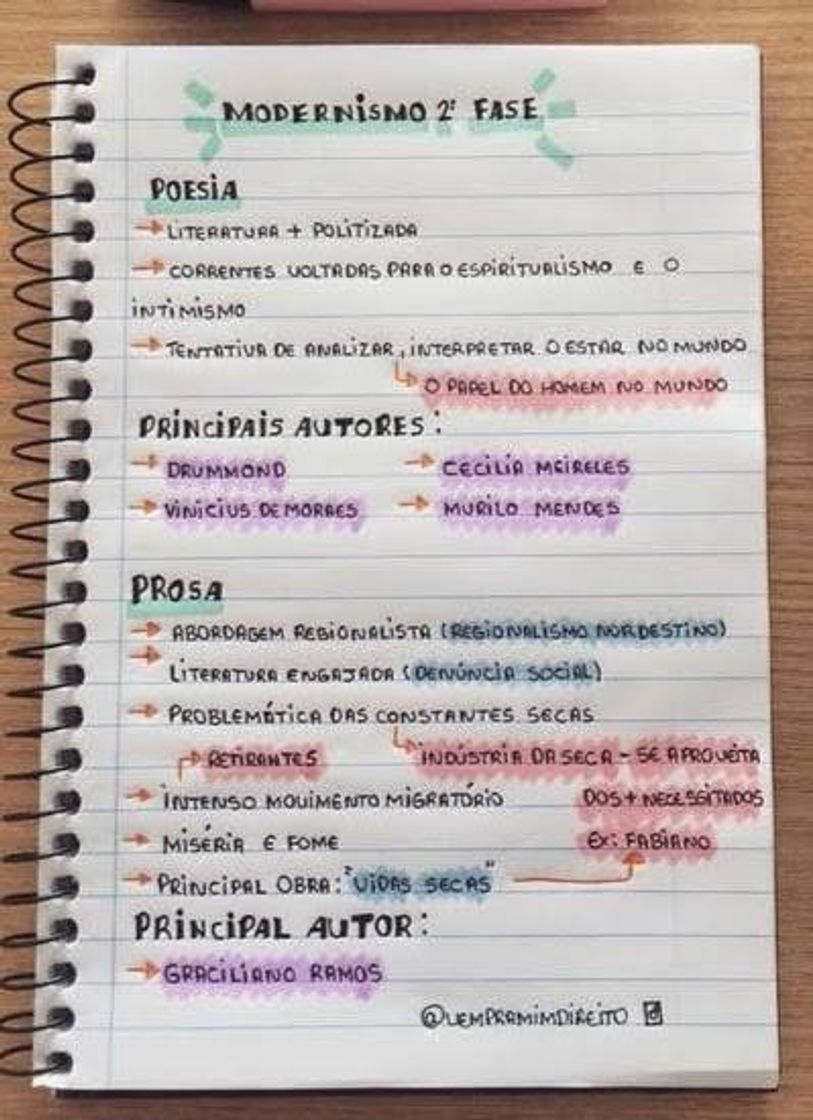 MODERNISMO 2ª FASE
POESIA
→ LITERATURA + POLITIZADA
→ CORRENTES VOLTADAS PARA O ESPIRITUALISMO E O
INTIMISMO
→ TENTATIVA DE ANALIZAR, INTERPRETAR O ESTAR NO MUNDO
O PAPEL DO HOMEM NO MUNDO
PRINCIPAIS AUTORES:
→ DRUMMOND → CECILIA MEIRELES
→ VINICIUS DE MORAES → MURILO MENDES
PROSA
→ ABORDAGEM REGIONALISTA (REGIONALISMO NORDESTINO)
→ LITERATURA ENGAJADA (DENÚNCIA SOCIAL)
→ PROBLEMÁTICA DAS CONSTANTES SECAS
RETIRANTES INDÚSTRIA DA SECA - SE APROVEITA
→ INTENSO MOVIMENTO MIGRATÓRIO DOS + NECESSITADOS
→ MISÉRIA E FOME EX: FABIANO
→ PRINCIPAL OBRA: "VIDAS SECAS"
PRINCIPAL AUTOR:
→ GRACILIANO RAMOS
@VEMPRAMIMDIREITO